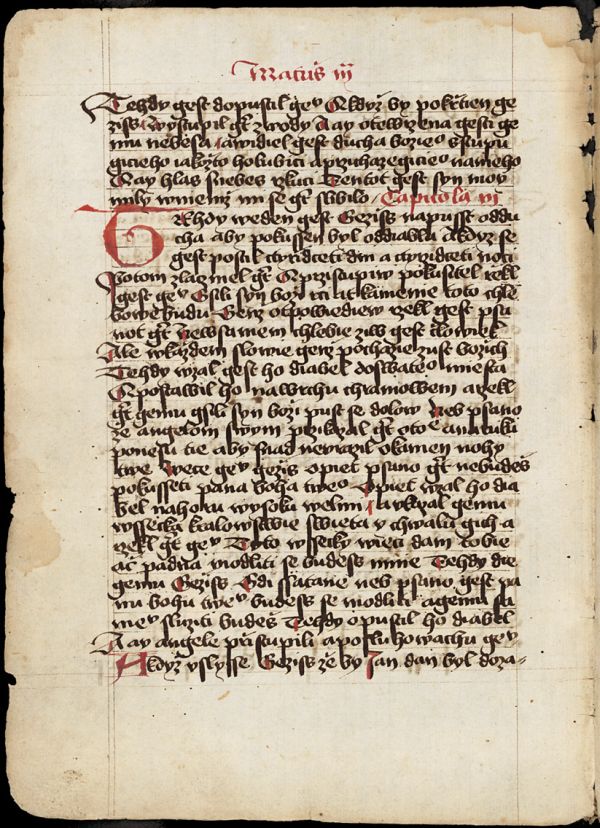 Matus iiij
Tehdy gest dopustil geᵛ A kdyz by pokrztien ge
ziss wystupil gt z wody A ay otewrzena gesti ge
mu nebesa a widiel gest ducha bozieᵒ stupu
gicieho iakzto holubici a przichazegicieᵒ na neho
A ay hlas s nebes rzkuci Tentot gest syn moy
mily w niemz mi se gt slibilo Capitola iiij
Tehdy weden gest Geziss na pusst od du
cha aby pokussen byl od diabla A kdyz se
gest postil cztyridceti dni a cztyridceti noci
Potom zlaczniel gt A przistupiw pokusitel rzekl
gest geᵛ Gsi li syn bozi rci at kamenie toto chle
bowe budu Genz otpowiediew rzekl gest psa
not gt Ne w samem chlebie ziw gest czlowiek
Ale w kazdem slowie genz pochazie z ust bozich
Tehdy wzal gest ho diabel do swateᵒ miesta
A postawil ho na wrchu chramowem a rzekl
gt gemu gsi li syn bozi pust se dolow Neb psano
ze angelom swym przikazal gt o tobe a na ruku
ponesu tie aby snad neurazil o kamen nohy
twe Wece geᵛ geziss opiet psano gt nebudess
pokusseti pana boha tweᵒ Opiet wzal ho dia
bel na horu wysoku welmi a ukazal gemu
wssecka kralowstwie swieta y chwalu gich a
rzekl gt geᵛ Tyto wssecky wieci dam tobie
ac padna modliti se budess mnie Tehdy die
gemu Geziss Gdi ssatane neb psano gest pa
nu bohu tweᵛ budess se modliti a gemu sa
meᵛ sluziti budes Tehdy opustil ho diabel
A ay angele przistupili a posluhowachu geᵛ
A kdyz uslysse Geziss ze by Jan dan byl do za-